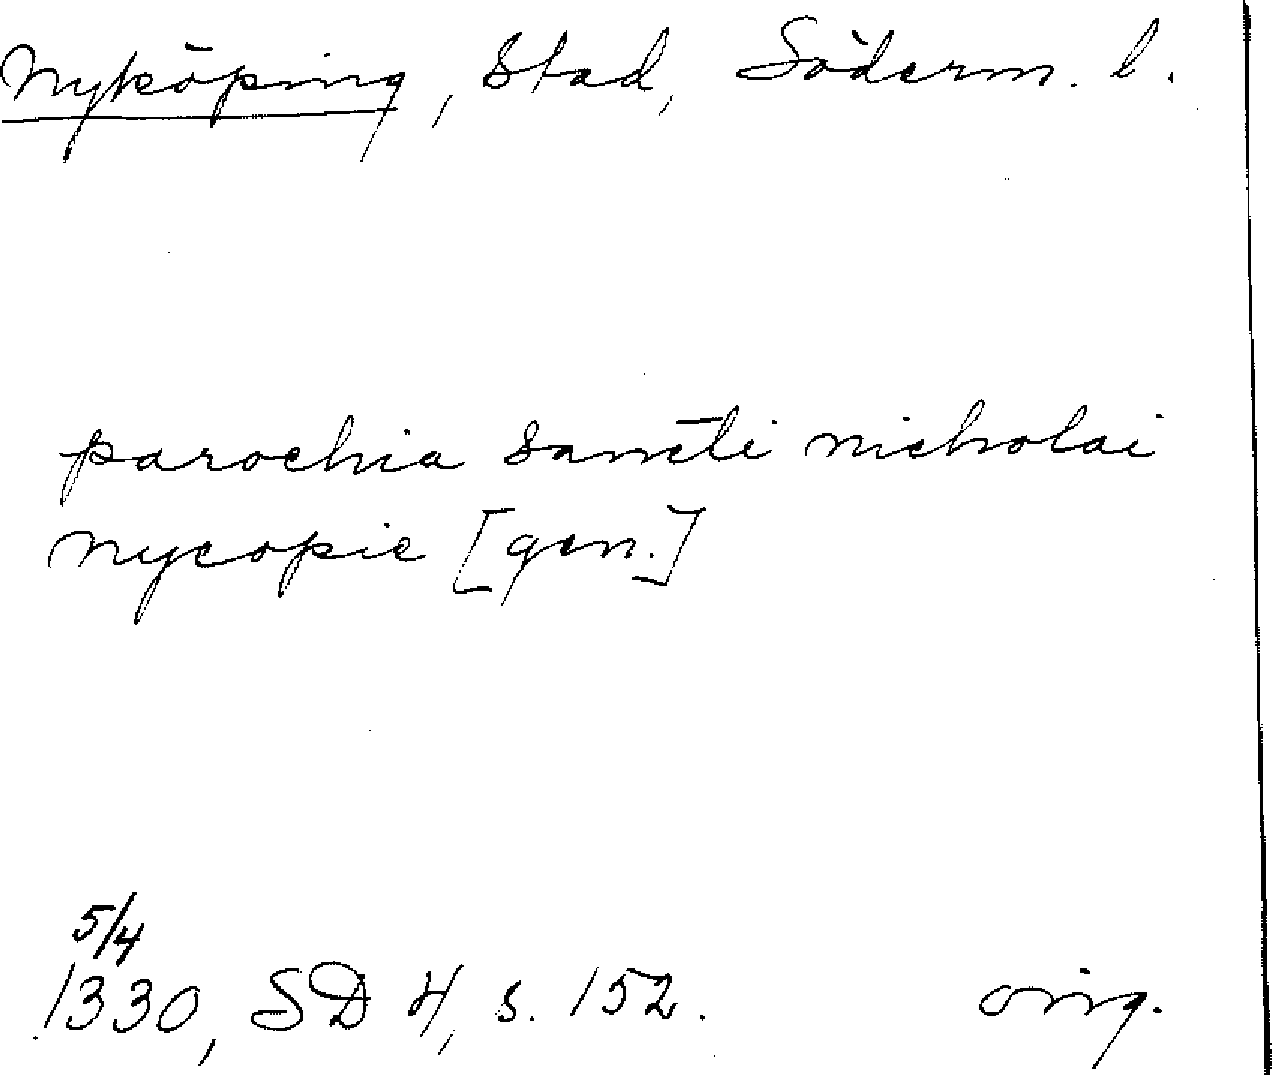 Nyköping, Stad, Söderm. l.
parochia sancti nicholai
nycopie [gen.]
5/4
1330, SD 4, s. 152. orig.